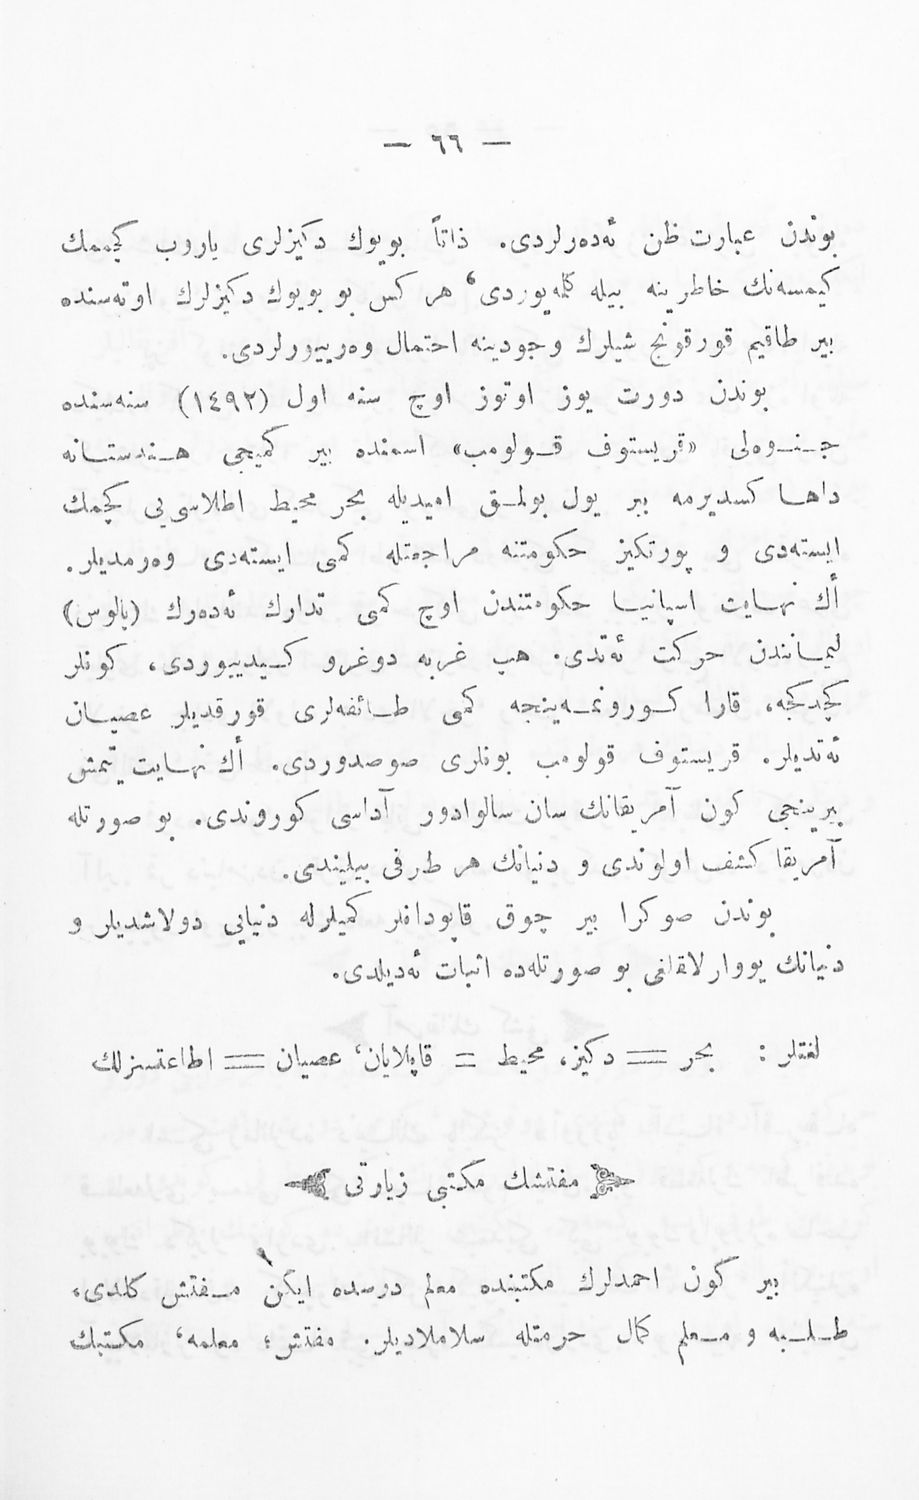 — ٦٦ —
بوندن عبارت ظن ئه‌ده‌رلردی. ذاتاً بویوك دكیزلری یاروب كچمك
كیمسه‌نك خاطرینه بیله كلمه‌یوردی، هر كس بو بویوك دكیزلرك اوته‌سنده
بیر طاقیم قورقونج شیلرك وجودینه احتمال وه‌رییورلردی.
بوندن دورت یوز اوتوز اوچ سنه اول (١٤٩٢) سنه‌سنده
جـنـوه‌لی «قریستوف قـولومب» اسمنده بیر كمیجی هـندستـانه
داهـا كسدیرمه بیر یول بولمـق امیدیله بحر محیط اطلاسی‌یی كچمك
ایسته‌دی و پورتكیز حكومتنه مراجعتله كمی ایسته‌دی وه‌رمدیلر.
أك نهـایت اسپانیـا حكومتندن اوچ كمی تدارك ئه‌ده‌رك (پالوس)
لیمـانندن حركت ئه‌تدی. هپ غربه دوغرو كـیدییوردی، كونلر
كچدكجه، قارا كـورونمـه‌ینجه كمی طـائفه‌لری قورقدیلر عصیـان
ئه‌تدیلر. قریستوف قولومب بونلری صوصدوردی. أك نهـایت یتمش
بیرینجی كون آمریقانك سان سالوادور آداسی كوروندی. بو صورتله
آمریقا كشف اولوندی و دنیانك هر طرفی بیلیندی.
بوندن صوكرا بیر چوق قاپودانلر كمیلرله دنیایی دولاشدیلر و
دنیانك یووارلاقلغی بو صورتله‌ده اثبات ئه‌دیلدی.
لغتلر : بحر = دكیز، محیط = قاپلایان، عصیان = اطاعتسزلك
مفتشك مكتبی زیارتی
بیر كون احمدلرك مكتبنده معلم درسده ایكن مـفتش كلدی،
طـلـبه و مـعلم كمال حرمتله سلاملادیلر. مفتش؛ معلمه، مكتبك